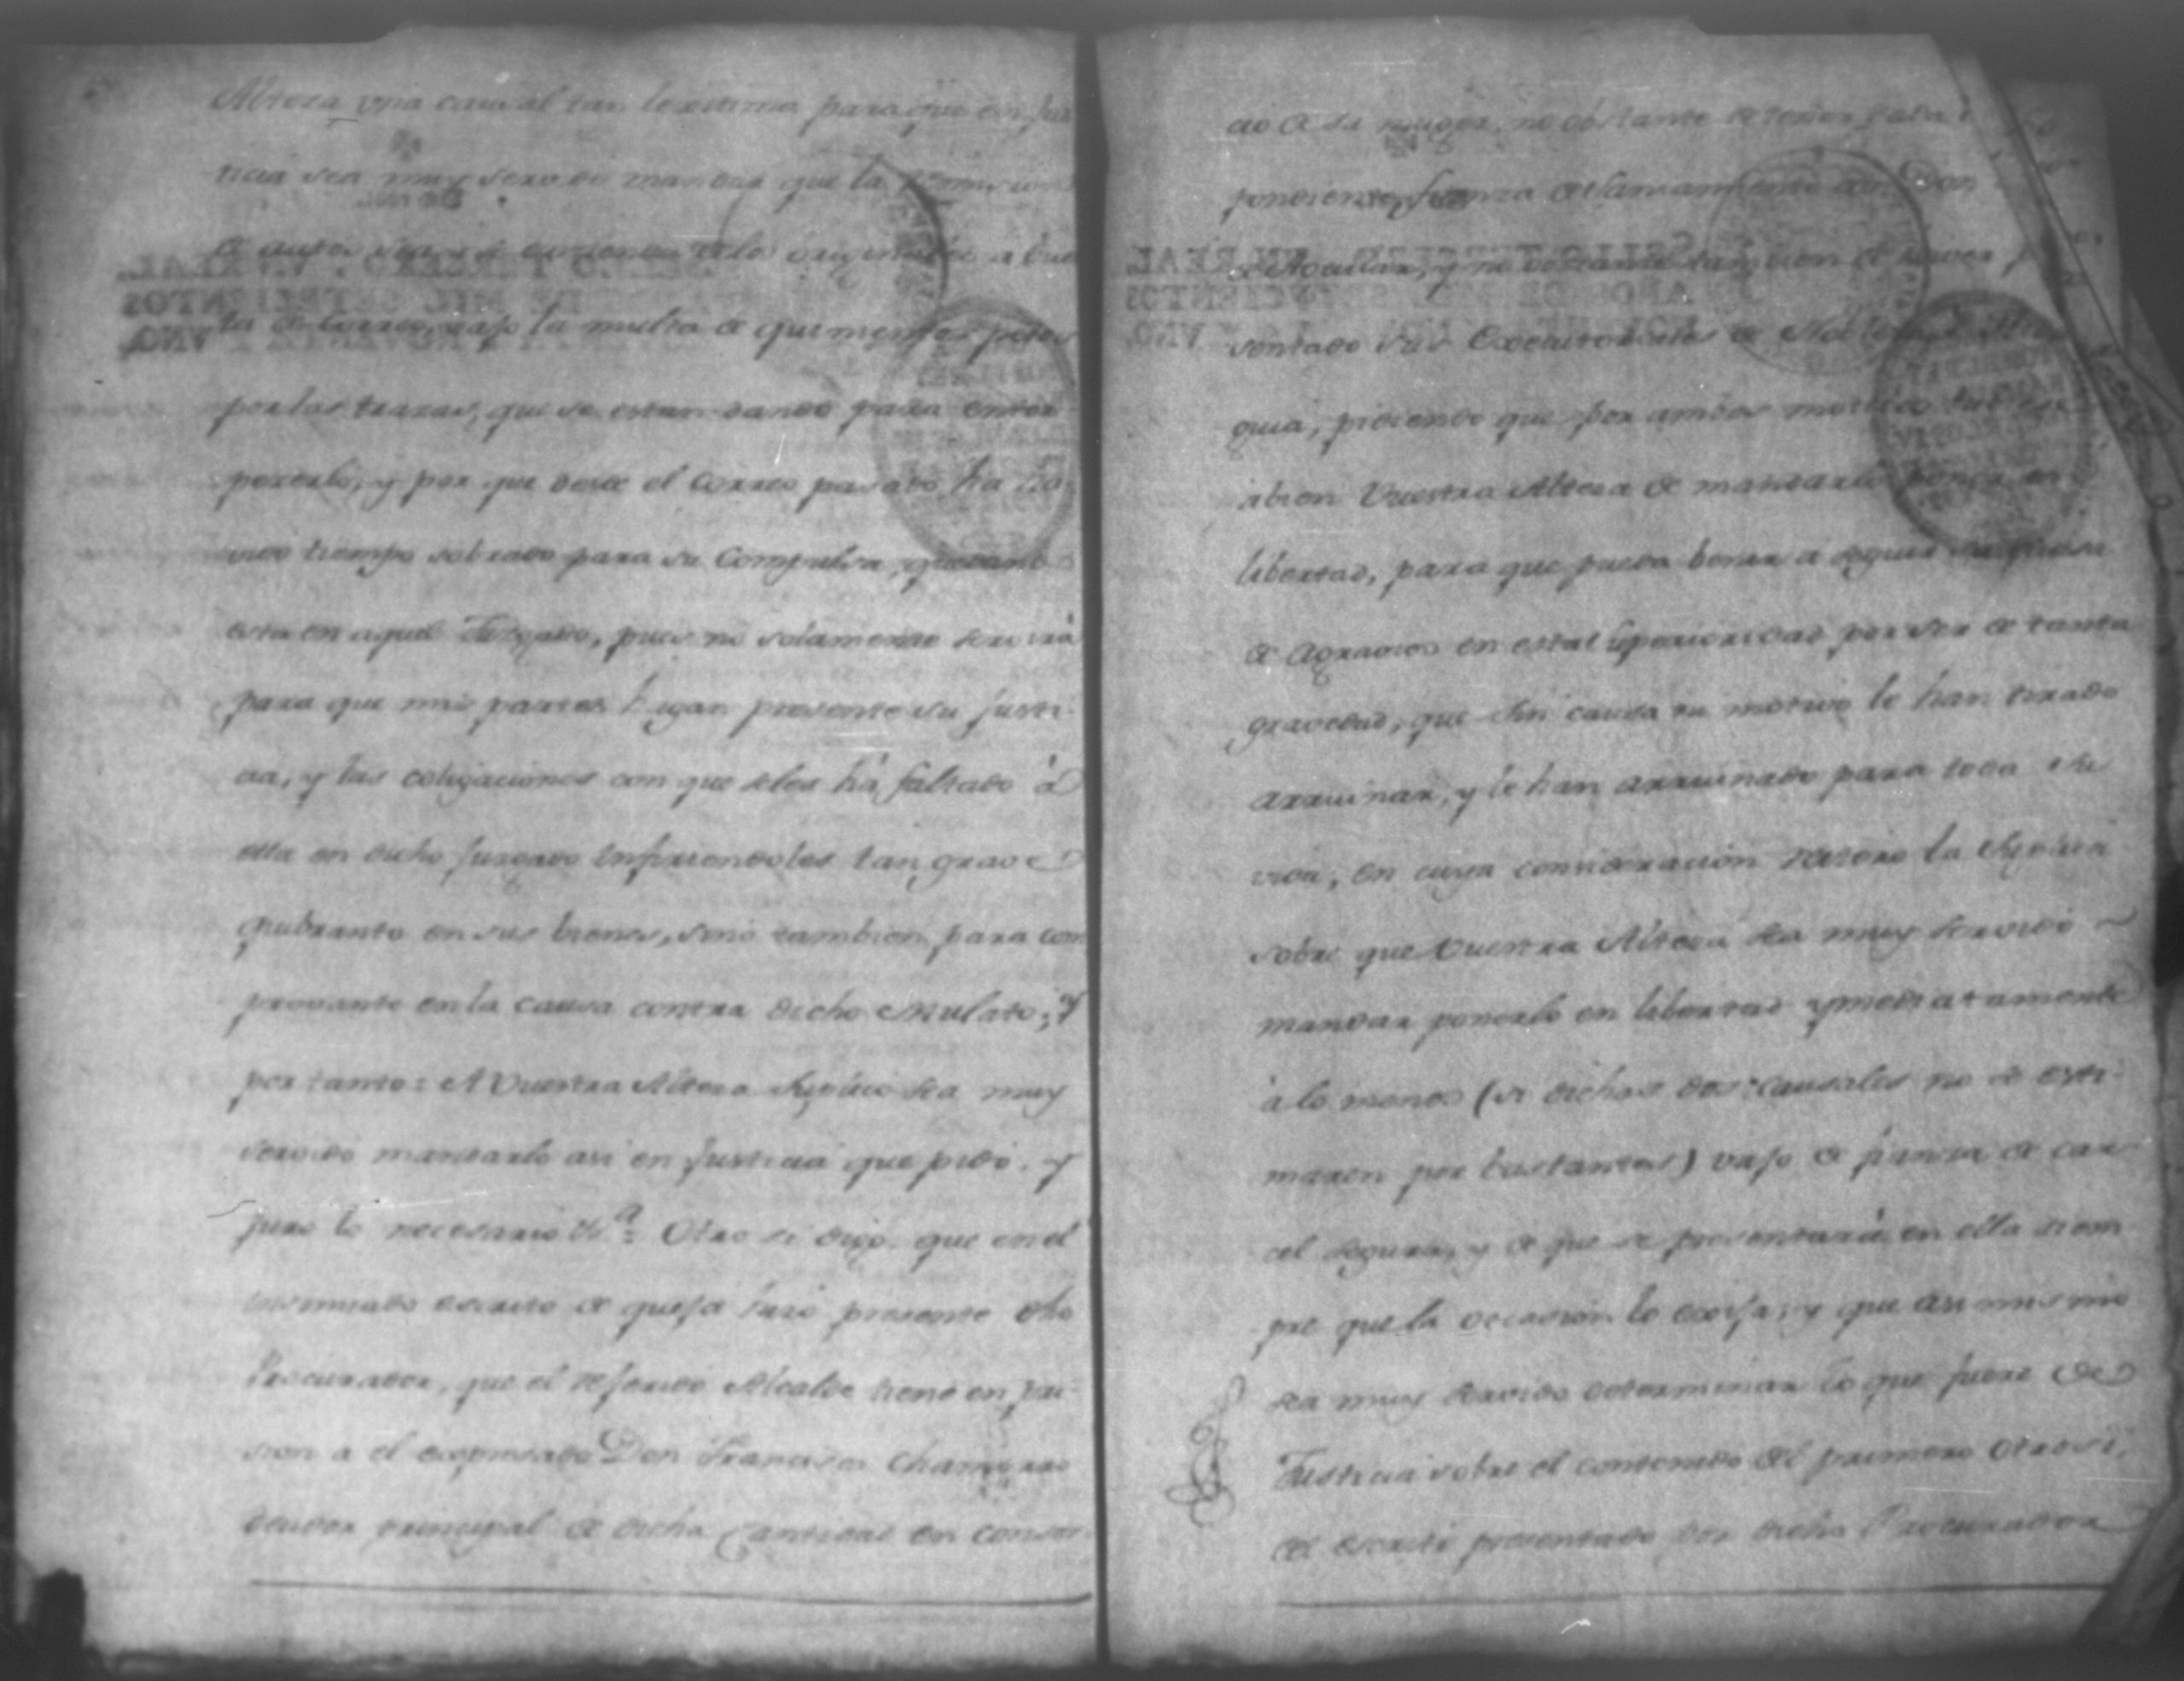 Alteza una causal tan lexitima para que en jus
ticia sea muy servido mandar que la remision
de autos sea
ta de Correo, vajo la multa de quinientos pesos
por las trazas, que se estan dando para entor
pecerlo, y por que desde el Correo pasado ha ha
vido tiempo sobrado para su Compulsa,
esta en aquel Juzgado, pues no solamente servirá
para que mis partes hagan presente su justi
cia, y las coligaciones con que se les há faltado á
ella en dicho Juzgado infiriendoles tan grave
qubranto en sus bienes, sino tambien para com
provante en la causa contra dicho Mulato; Y
por tanto: A Vuestra Alteza Suplico sea muy
servido mandarlo asi en justicia que pido, y
juro lo necesario &.ª Otro si digo, que en el
insinuado escrito de queja hizo presente dho
Procurador, que el referido Alcalde tiene en pri
sion a el expresado Don Francisco Chamorro
deudor principal de dicha Cantidad en consor
cio de su muger, no obstante de tener dada
pondiente fianza de Saneamiento Don
de Aguilar, y no obstante tambien de haver
sentado sus Executorias de
guia, pidiendo que por ambos motivos
abien Vuestra Alteza de mandarlo poner en
libertad, para que pueda benir a seguir su
de agravios en esta Superioridad por ser de tanta
gravedad, que sin causa ni motivo le han tirado
arruinar, y le han arruinado para toda su
vida, en cuya consideracion reitero la Suplica
sobre que Vuestra Alteza sea muy servido
mandar ponerlo en libertad ymediatamente
á lo menos (si dichas dos causales no se esti
maren por bastantes) vajo de fianza de car
cel segura, y de que se presentará en ella siem
pre que la ocasion lo exija, y que asi mismo
sea muy servido determinar lo que fuere de
Justicia sobre el contenido del primero otrosi,
del escrito presentado por dicho Procurador